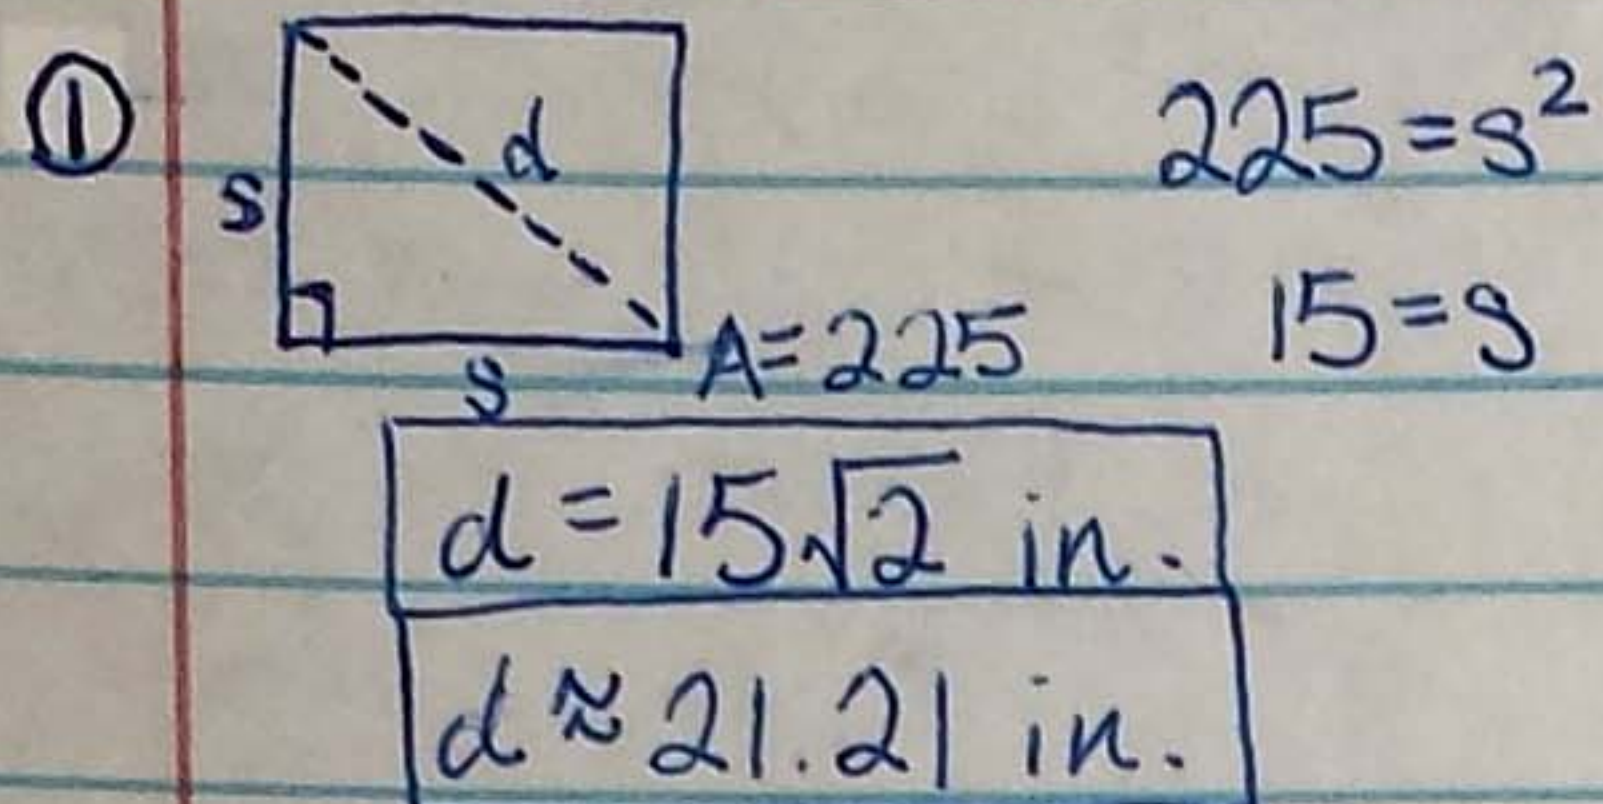 ①
d
s
s
A=225
225=s²
15=s
d=15√2 in.
d≈21.21 in.